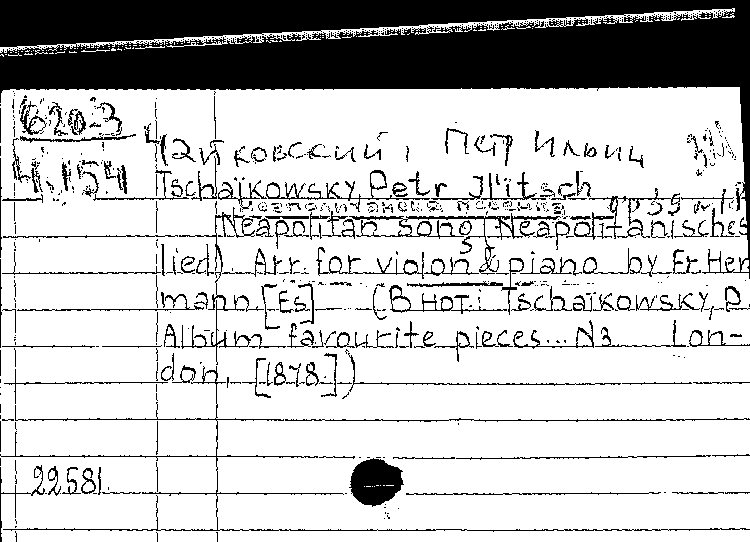 620-3
4.154
Чайковский, Петр Ильич
Tschaïkowsky, Petr Il'itsch
Неаполитанская песенка op 39
Neapolitan song (Neapolitanisches
lied). Arr. for violon & piano by Fr. Her
mann. [Es] (В нот.: Tschaïkowsky, P.
Album favourite pieces... N3 Lon-
don, [1878.])
22581.